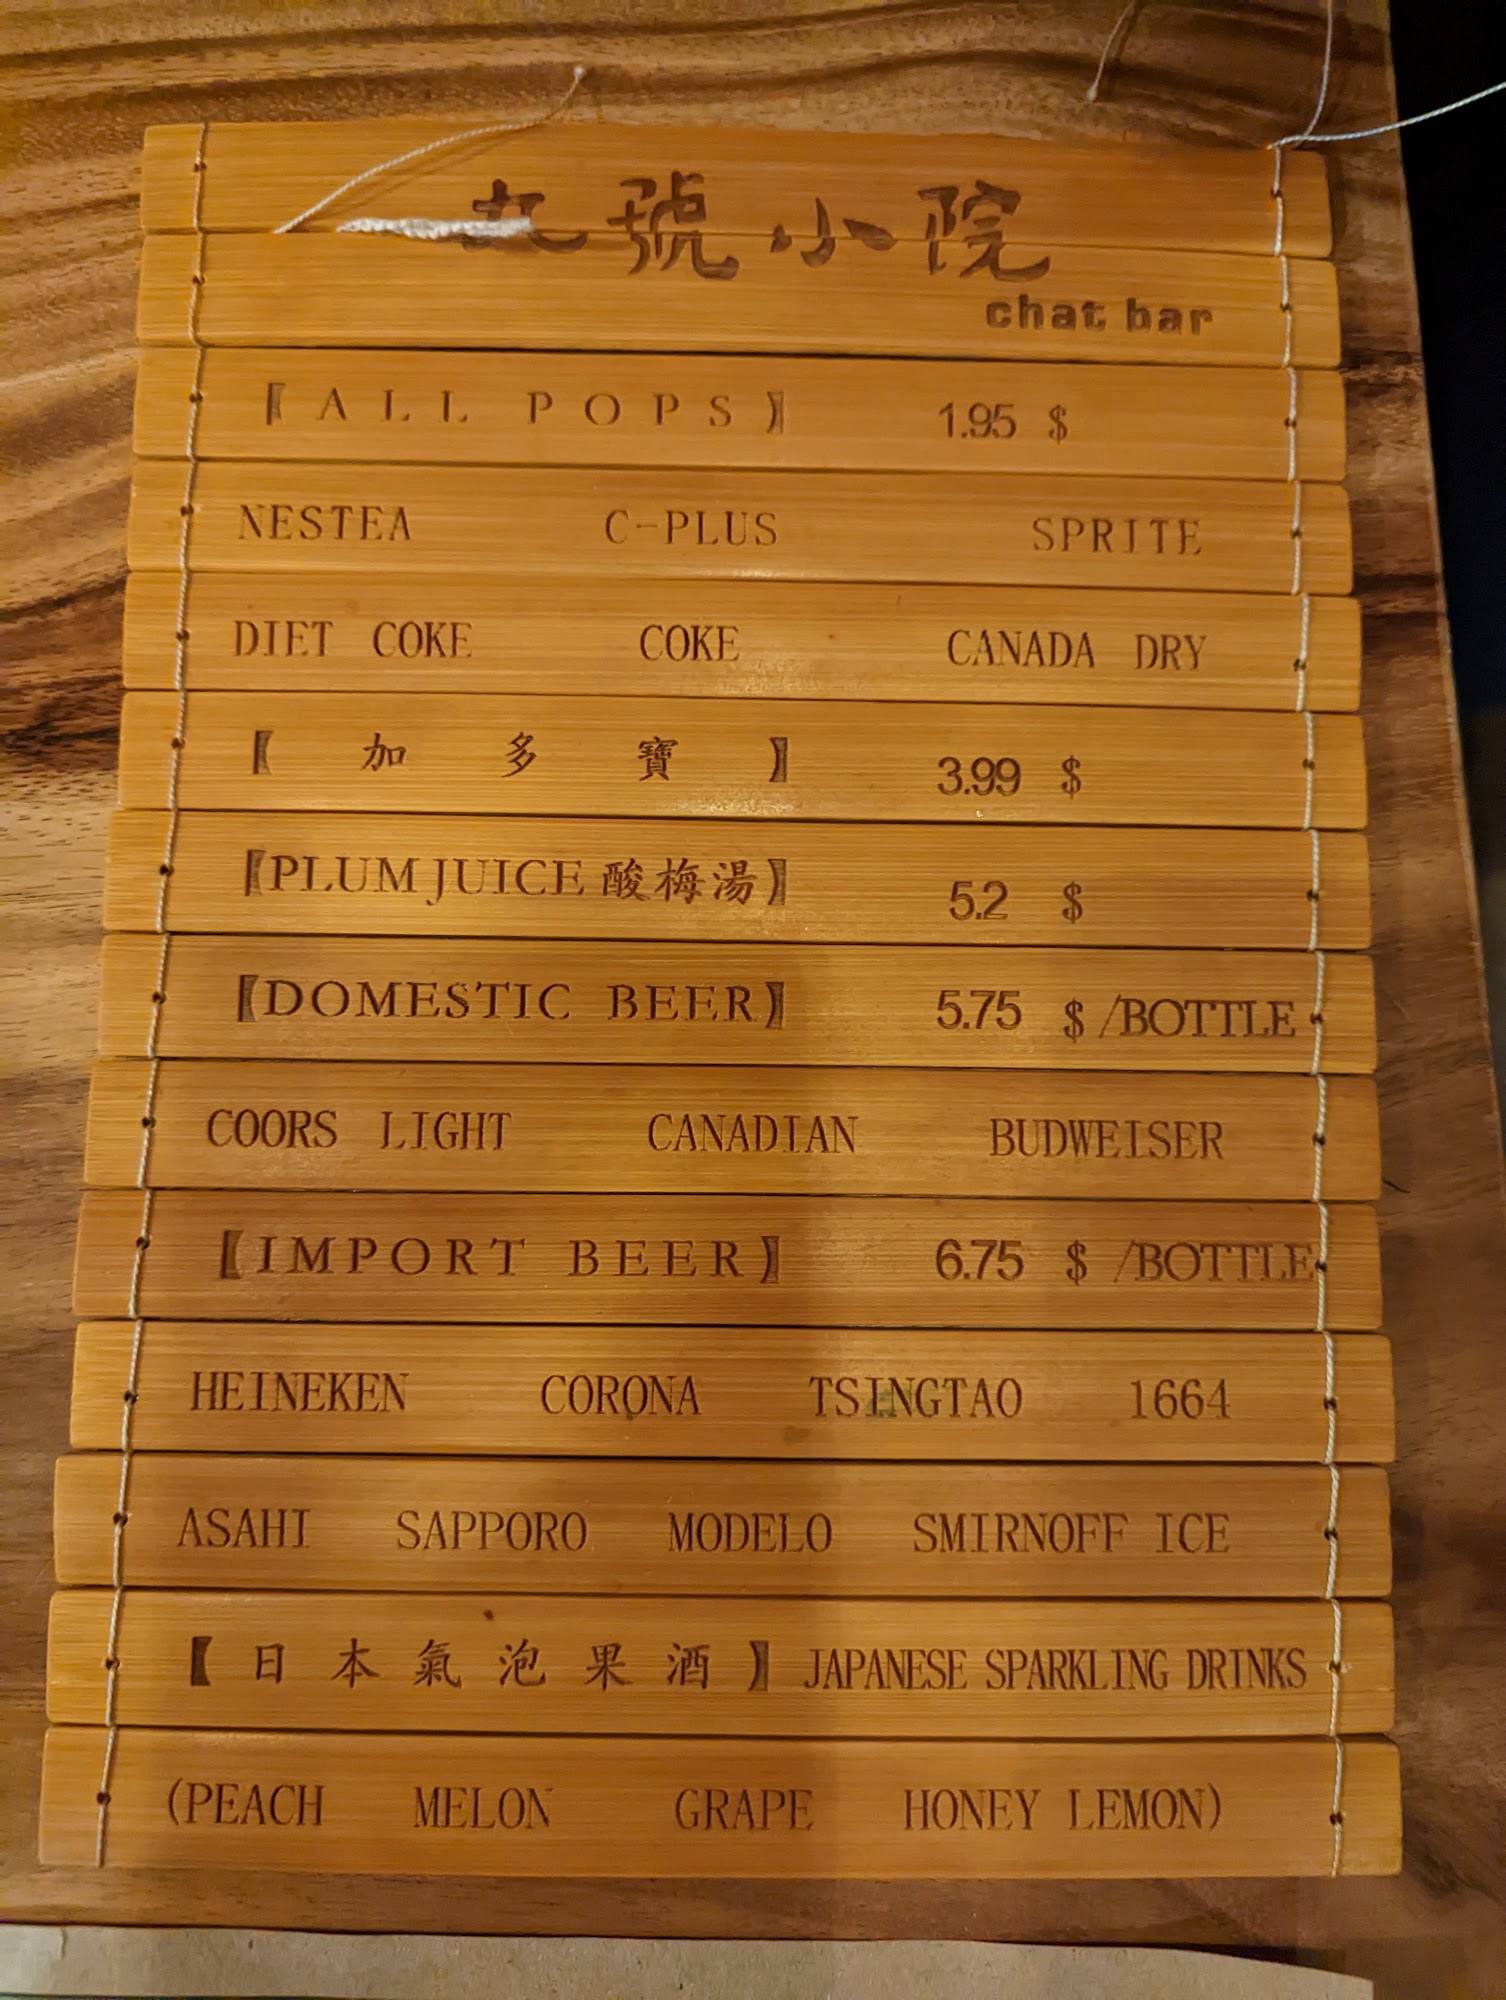 九號小院
chat bar
【ALL POPS】 1.95 $
NESTEA C-PLUS SPRITE
DIET COKE COKE CANADA DRY
【加多寶】 3.99 $
【PLUM JUICE 酸梅湯】 5.2 $
【DOMESTIC BEER】 5.75 $ /BOTTLE
COORS LIGHT CANADIAN BUDWEISER
【IMPORT BEER】 6.75 $ /BOTTLE
HEINEKEN CORONA TSINGTAO 1664
ASAHI SAPPORO MODELO SMIRNOFF ICE
【日本氣泡果酒】 JAPANESE SPARKLING DRINKS
(PEACH MELON GRAPE HONEY LEMON)